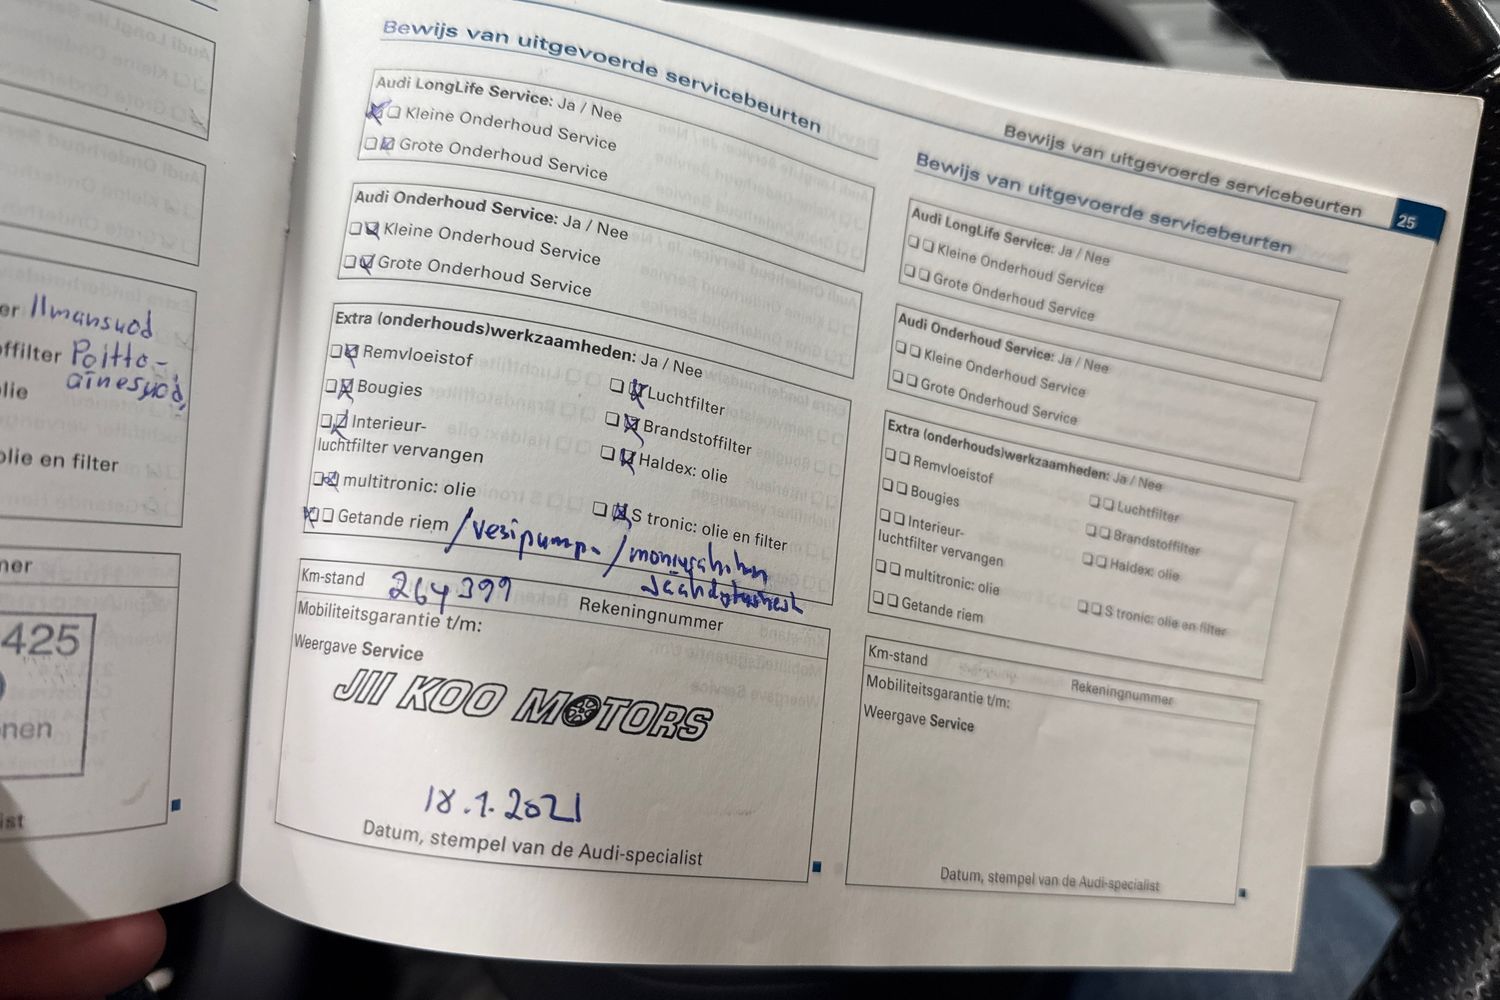 er Ilmansuod
offilter Poitto-
ainesuod,
olie
olie en filter
ner
425
nen
ist
Bewijs van uitgevoerde servicebeurten
Audi LongLife Service: Ja / Nee
Kleine Onderhoud Service
Grote Onderhoud Service
Audi Onderhoud Service: Ja / Nee
Kleine Onderhoud Service
Grote Onderhoud Service
Extra (onderhouds)werkzaamheden: Ja / Nee
Remvloeistof
Bougies
Interieur-
luchtfilter vervangen
multitronic: olie
Getande riem /vesipump. /moniurahihna
Luchtfilter
Brandstoffilter
Haldex: olie
S tronic: olie en filter
Km-stand 264399
Rekeningnummer
Mobiliteitsgarantie t/m:
Weergave Service
JII KOO MOTORS
18.1.2021
Datum, stempel van de Audi-specialist
Bewijs van uitgevoerde servicebeurten
25
Bewijs van uitgevoerde servicebeurten
Audi LongLife Service: Ja / Nee
Kleine Onderhoud Service
Grote Onderhoud Service
Audi Onderhoud Service: Ja / Nee
Kleine Onderhoud Service
Grote Onderhoud Service
Extra (onderhouds)werkzaamheden: Ja / Nee
Remvloeistof
Bougies
Interieur-
luchtfilter vervangen
multitronic: olie
Getande riem
Luchtfilter
Brandstoffilter
Haldex: olie
S tronic: olie en filter
Km-stand
Rekeningnummer
Mobiliteitsgarantie t/m:
Weergave Service
Datum, stempel van de Audi-specialist